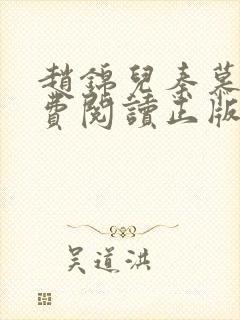 趙錦兒秦慕
費閱讀正版
吳道洪